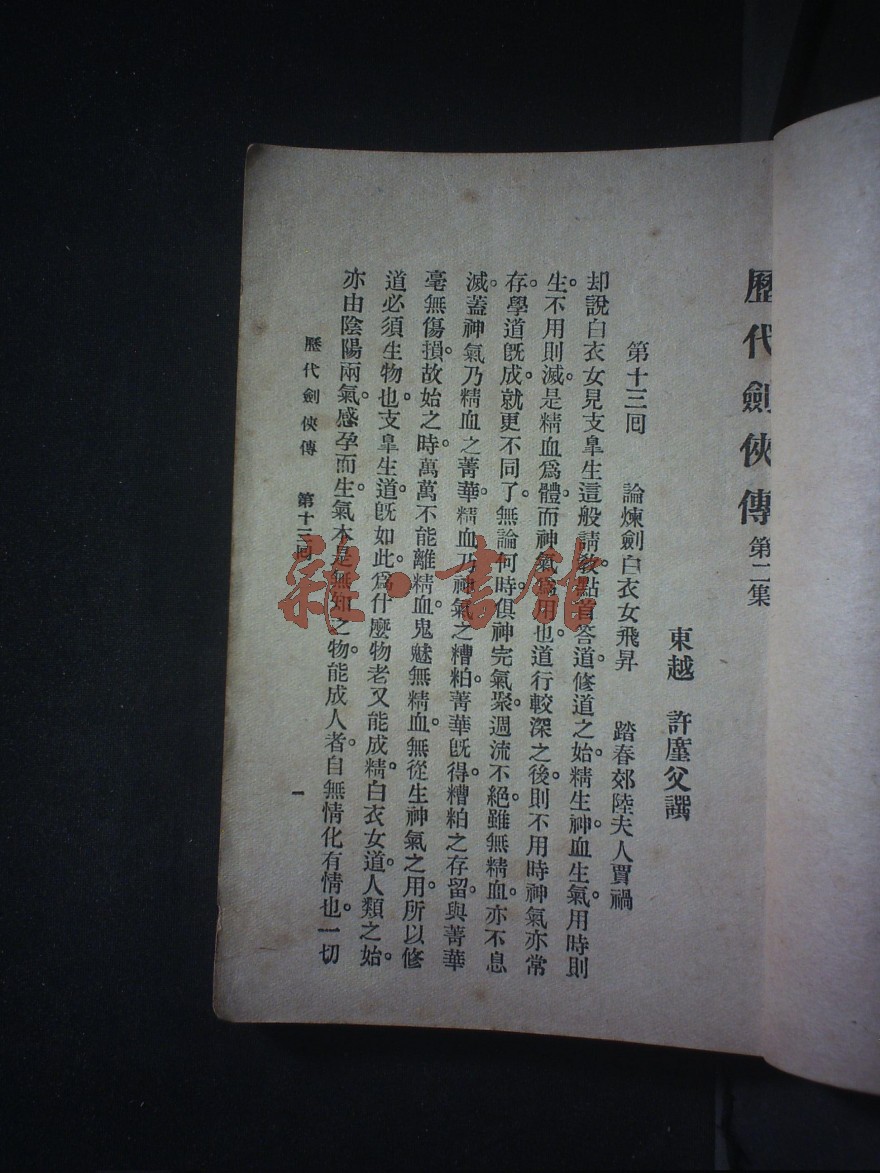 歷代劍俠傳 第二集
東越 許廑父譔
第十三回 論煉劍白衣女飛昇 踏春郊陸夫人賈禍
却說白衣女見支皐生這般請教點首答道。修道之始。精生神。血生氣。用時則
生。不用則滅。是精血爲體。而神氣爲用也。道行較深之後。則不用時神氣亦常
存。學道旣成。就更不同了。無論何時。俱神完氣聚。週流不絕。雖無精血。亦不息
滅。蓋神氣乃精血之菁華。精血乃神氣之糟粕。菁華旣得。糟粕之存留。與菁華
毫無傷損。故始之時。萬萬不能離精血。鬼魅無精血。無從生神氣之用。所以修
道必須生物也。支皐生道。旣如此。爲什麼物老又能成精。白衣女道。人類之始。
亦由陰陽兩氣。感孕而生。氣本是無知之物。能成人者。自無情化有情也。一切
歷代劍俠傳 第十三回
一
雜·書館